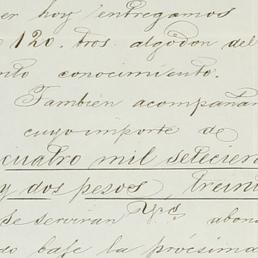 er hoy entregamos
120. tros. algodon del
nto conocimiento.
Tambien acompañan
cuyo importe de
cuatro mil setecien
y dos pesos, trein
se serviran Vds abon
do bajo la procsima